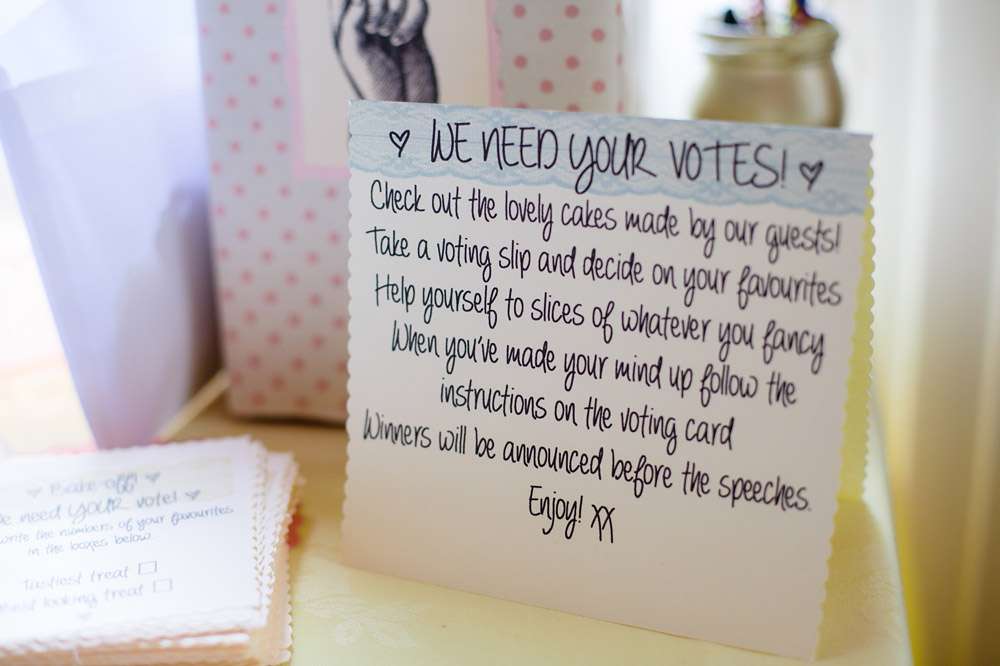 ♡ WE NEED YOUR VOTES! ♡
Check out the lovely cakes made by our guests!
Take a voting slip and decide on your favourites
Help yourself to slices of whatever you fancy
When you've made your mind up follow the
instructions on the voting card
Winners will be announced before the speeches.
Enjoy! xx
Bake off!
need YOUR vote!
the numbers of your favourites
in the boxes below.
Tastiest treat
looking treat